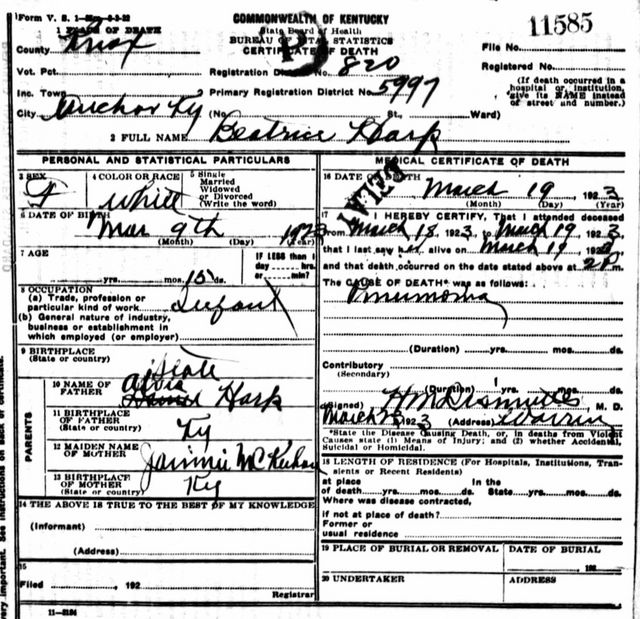 Form V. S. 1—
COMMONWEALTH OF KENTUCKY
State Board of Health
BUREAU OF VITAL STATISTICS
CERTIFICATE OF DEATH
11585
1 PLACE OF DEATH
County Knox
File No.
Vot. Pct.
Registration District No. 820
Registered No.
Inc. Town
Primary Registration District No. 5997
(If death occurred in a hospital or institution, give its NAME instead of street and number.)
City Anchor Ky (No. St., Ward)
2 FULL NAME Beatrice Harp
PERSONAL AND STATISTICAL PARTICULARS
3 SEX F
4 COLOR OR RACE White
5 Single Married Widowed or Divorced (Write the word)
6 DATE OF BIRTH
Mar 9th 1923
(Month) (Day) (Year)
7 AGE
yrs. mos. ds.
IF LESS than 1 day hrs. or min.?
8 OCCUPATION
(a) Trade, profession or particular kind of work
(b) General nature of industry, business or establishment in which employed (or employer)
9 BIRTHPLACE
(State or country) State
PARENTS
10 NAME OF FATHER Harp
11 BIRTHPLACE OF FATHER
(State or country) Ky
12 MAIDEN NAME OF MOTHER
13 BIRTHPLACE OF MOTHER
(State or country) Ky
14 THE ABOVE IS TRUE TO THE BEST OF MY KNOWLEDGE
(Informant)
(Address)
15
Filed , 192
Registrar
11—3184
MEDICAL CERTIFICATE OF DEATH
16 DATE OF DEATH
March 19 , 1923
(Month) (Day) (Year)
17 I HEREBY CERTIFY, That I attended deceased
from March 18, 1923, to March 19, 1923,
that I last saw her alive on March 19, 192
and that death occurred on the date stated above at 2 P m.
The CAUSE OF DEATH* was as follows:
(Duration) yrs. mos. ds.
Contributory
(Secondary)
(Duration) yrs. mos. ds.
(Signed) M. D.
March , 1923 (Address)
*State the Disease Causing Death, or, in deaths from Violent Causes state (1) Means of Injury; and (2) whether Accidental, Suicidal or Homicidal.
18 LENGTH OF RESIDENCE (For Hospitals, Institutions, Transients or Recent Residents)
at place of death yrs. mos. ds. In the State yrs. mos. ds.
Where was disease contracted,
if not at place of death?
Former or usual residence
19 PLACE OF BURIAL OR REMOVAL
DATE OF BURIAL
, 192
20 UNDERTAKER
ADDRESS